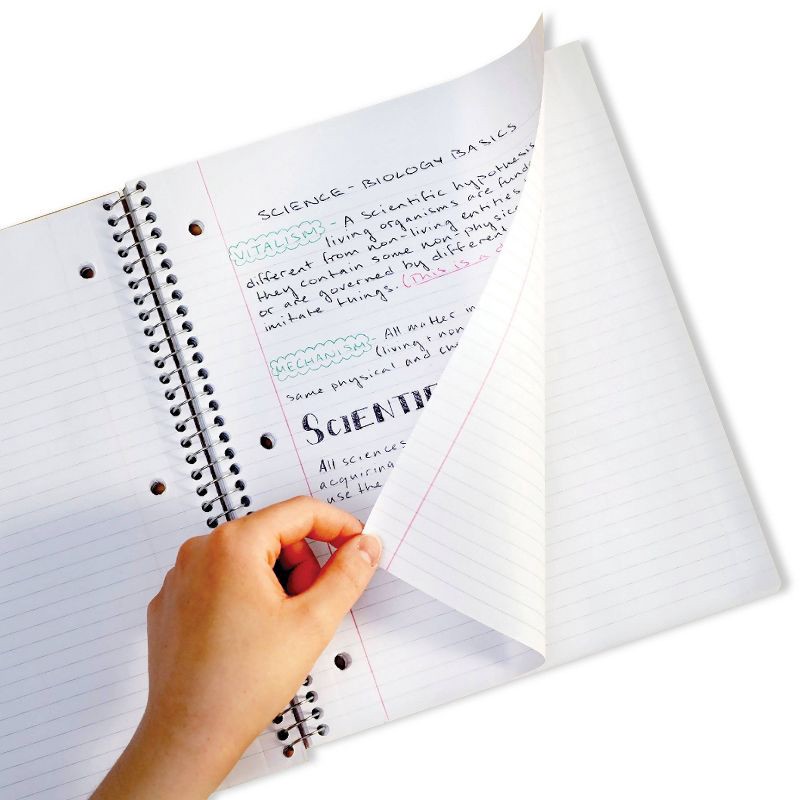 SCIENCE - BIOLOGY BASICS
VITALISM - A scientific hypothesis
living organisms are
different from non-living entities
they contain some non-physic
or are governed by differen
imitate things. (This is a
MECHANISM - All matter in
(living + non
same physical and
SCIENTI
All sciences
acquiring
use the